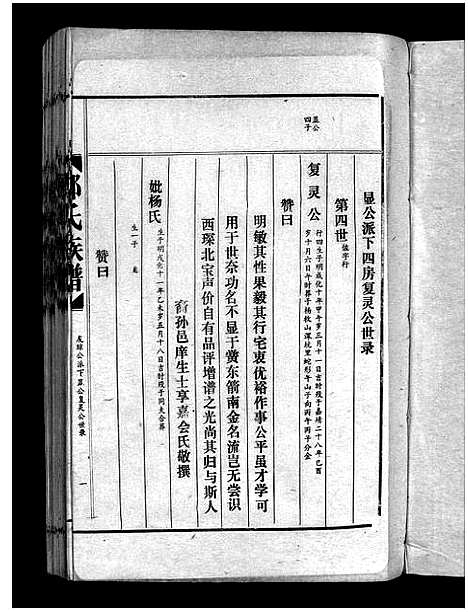 显公派下四房复灵公世录
第四世
显公四子
复灵公 行四生于明成化十年甲午岁三月十一日吉时殁于嘉靖二十八年己酉
岁十月六日午时葬于杨救山深坑里蛇形午山子向丙午丙子分金
赞曰
明敏其性果毅其行宅衷优裕作事公平虽才学可
用于世奈功名不显于黉东箭南金名流岂无尝识
西琛北宝声价自有品评增谱之光尚其归与斯人
裔孙邑庠生士享嘉会氏敬撰
妣杨氏 生于明成化十一年乙未岁五月十八日吉时殁于同夫合葬
生一子
赞曰
氏族谱
公派下显公复灵公世录
一